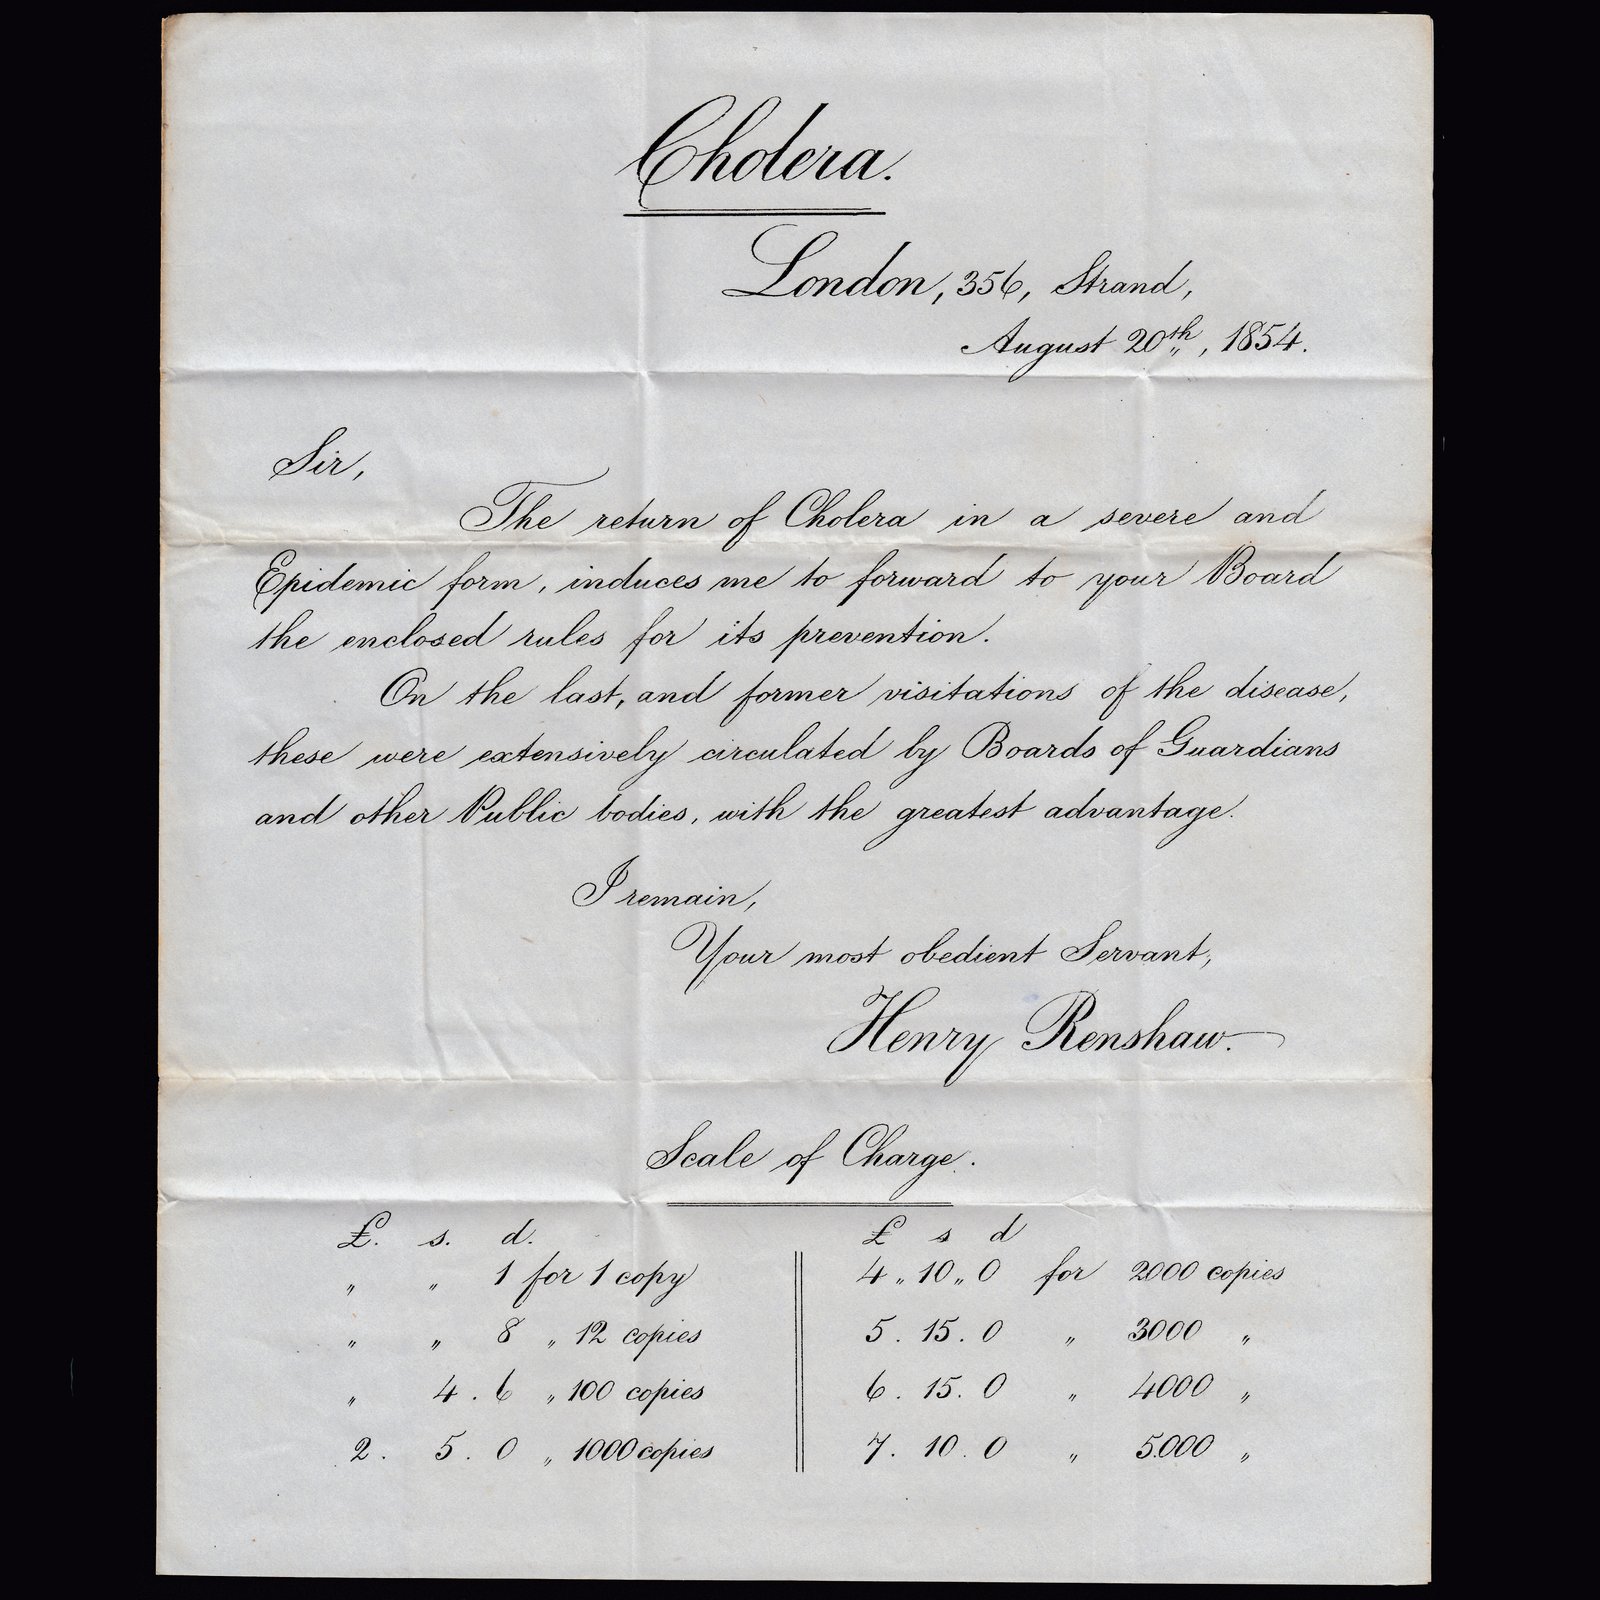 Cholera.
London, 356, Strand,
August 20th, 1854.
Sir,
The return of Cholera in a severe and
Epidemic form, induces me to forward to your Board
the enclosed rules for its prevention.
On the last, and former visitations of the disease,
these were extensively circulated by Boards of Guardians
and other Public bodies, with the greatest advantage.
I remain,
Your most obedient Servant,
Henry Renshaw.
Scale of Charge.
£. s. d.
" " 1 for 1 copy
" " 8 " 12 copies
" 4 . 6 " 100 copies
2 . 5 . 0 " 1000 copies
£ s d
4 " 10 " 0 for 2000 copies
5 . 15 . 0 " 3000 "
6 . 15 . 0 " 4000 "
7 . 10 . 0 " 5.000 "